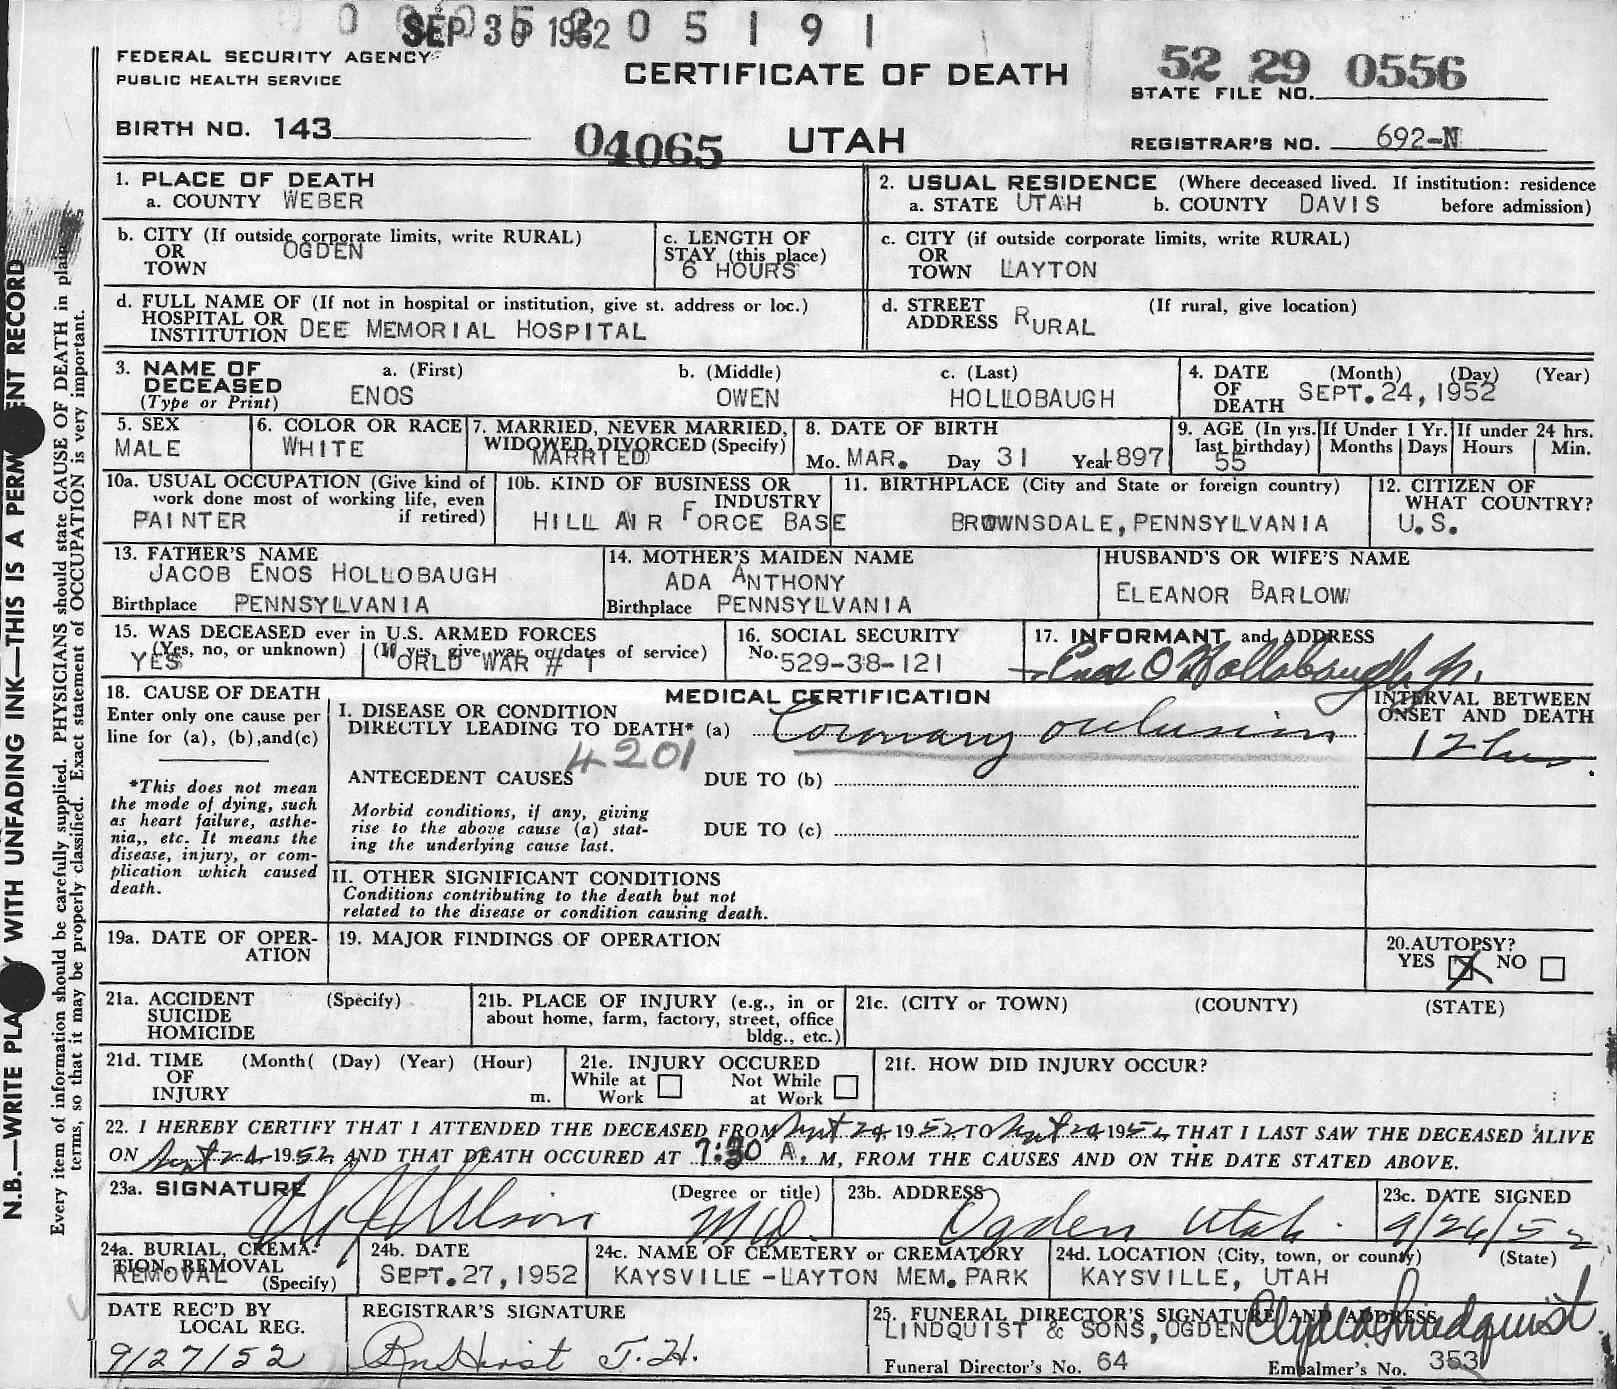 SEP 30 1952 0 5 1 9 1
FEDERAL SECURITY AGENCY
PUBLIC HEALTH SERVICE
CERTIFICATE OF DEATH
52 29 0556
STATE FILE NO.
BIRTH NO. 143
04065
UTAH
REGISTRAR'S NO. 692-N
1. PLACE OF DEATH
a. COUNTY WEBER
2. USUAL RESIDENCE (Where deceased lived. If institution: residence before admission)
a. STATE UTAH b. COUNTY DAVIS
b. CITY (If outside corporate limits, write RURAL)
OR
TOWN
OGDEN
c. LENGTH OF
STAY (this place)
6 HOURS
c. CITY (if outside corporate limits, write RURAL)
OR
TOWN LAYTON
d. FULL NAME OF (If not in hospital or institution, give st. address or loc.)
HOSPITAL OR
INSTITUTION DEE MEMORIAL HOSPITAL
d. STREET (If rural, give location)
ADDRESS RURAL
3. NAME OF
DECEASED
(Type or Print)
a. (First) b. (Middle) c. (Last)
ENOS OWEN HOLLOBAUGH
4. DATE (Month) (Day) (Year)
OF
DEATH SEPT.24,1952
5. SEX
MALE
6. COLOR OR RACE
WHITE
7. MARRIED, NEVER MARRIED,
WIDOWED, DIVORCED (Specify)
MARRIED
8. DATE OF BIRTH
Mo. MAR. Day 31 Year 1897
9. AGE (In yrs.
last birthday)
55
If Under 1 Yr.
Months Days
If under 24 hrs.
Hours Min.
10a. USUAL OCCUPATION (Give kind of
work done most of working life, even
if retired)
PAINTER
10b. KIND OF BUSINESS OR
INDUSTRY
HILL AIR FORCE BASE
11. BIRTHPLACE (City and State or foreign country)
BROWNSDALE, PENNSYLVANIA
12. CITIZEN OF
WHAT COUNTRY?
U.S.
13. FATHER'S NAME
JACOB ENOS HOLLOBAUGH
Birthplace PENNSYLVANIA
14. MOTHER'S MAIDEN NAME
ADA ANTHONY
Birthplace PENNSYLVANIA
HUSBAND'S OR WIFE'S NAME
ELEANOR BARLOW
15. WAS DECEASED ever in U.S. ARMED FORCES
(Yes, no, or unknown) (If yes, give war or dates of service)
YES WORLD WAR # 1
16. SOCIAL SECURITY
No. 529-38-121
17. INFORMANT and ADDRESS
Enos O Hollobaugh Jr.
18. CAUSE OF DEATH
Enter only one cause per
line for (a), (b), and (c)
*This does not mean
the mode of dying, such
as heart failure, asthe-
nia,, etc. It means the
disease, injury, or com-
plication which caused
death.
MEDICAL CERTIFICATION
I. DISEASE OR CONDITION
DIRECTLY LEADING TO DEATH* (a) Coronary occlusion
4201
ANTECEDENT CAUSES DUE TO (b)
Morbid conditions, if any, giving
rise to the above cause (a) stat-
ing the underlying cause last.
DUE TO (c)
INTERVAL BETWEEN
ONSET AND DEATH
12 hrs.
II. OTHER SIGNIFICANT CONDITIONS
Conditions contributing to the death but not
related to the disease or condition causing death.
19a. DATE OF OPER-
ATION
19. MAJOR FINDINGS OF OPERATION
20. AUTOPSY?
YES NO
21a. ACCIDENT (Specify)
SUICIDE
HOMICIDE
21b. PLACE OF INJURY (e.g., in or
about home, farm, factory, street, office
bldg., etc.)
21c. (CITY or TOWN) (COUNTY) (STATE)
21d. TIME (Month( (Day) (Year) (Hour)
OF
INJURY m.
21e. INJURY OCCURED
While at Work Not While at Work
21f. HOW DID INJURY OCCUR?
22. I HEREBY CERTIFY THAT I ATTENDED THE DECEASED FROM Sept 24, 1952, TO Sept 24 1952, THAT I LAST SAW THE DECEASED ALIVE
ON Sept 24 1952, AND THAT DEATH OCCURED AT 7:30 A. M, FROM THE CAUSES AND ON THE DATE STATED ABOVE.
23a. SIGNATURE (Degree or title)
Wilson MD.
23b. ADDRESS
Ogden Utah.
23c. DATE SIGNED
9/26/52
24a. BURIAL, CREMA-
TION, REMOVAL
(Specify)
REMOVAL
24b. DATE
SEPT.27,1952
24c. NAME OF CEMETERY or CREMATORY
KAYSVILLE-LAYTON MEM. PARK
24d. LOCATION (City, town, or county) (State)
KAYSVILLE, UTAH
DATE REC'D BY
LOCAL REG.
9/27/52
REGISTRAR'S SIGNATURE
J.H.
25. FUNERAL DIRECTOR'S SIGNATURE AND ADDRESS
LINDQUIST & SONS, OGDEN Clyde Lindquist
Funeral Director's No. 64 Embalmer's No. 353
N.B.—WRITE PLAINLY WITH UNFADING INK—THIS IS A PERMANENT RECORD
Every item of information should be carefully supplied. PHYSICIANS should state CAUSE OF DEATH in plain
terms, so that it may be properly classified. Exact statement of OCCUPATION is very important.